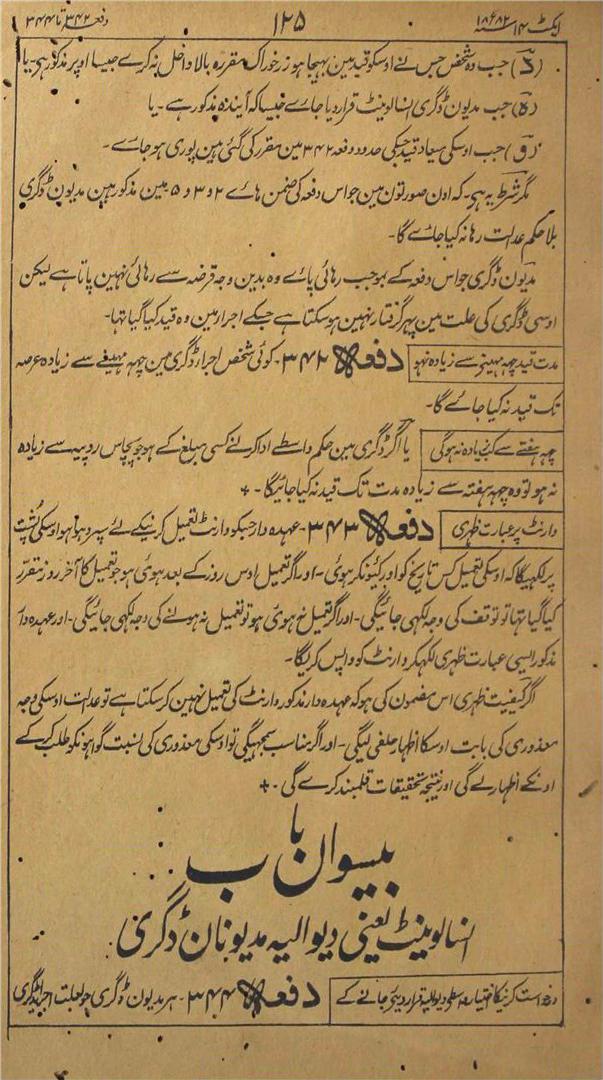 ایکٹ ۱۴ سنہ ۱۸۸۲ء ۱۲۵ دفعہ ۳۴۲ تا ۳۴۴
(د) جب وہ شخص جس نے اوسکو قید مین بہیجا ہو زر خوراک مقررہ بالا داخل نہ کرے جیسا اوپر مذکور ہی۔ یا
(ہ) جب مدیون ڈگری انسالونیٹ قرار دیا جاے جیسا کہ آیندہ مذکور ہے ۔ یا
(و) جب اوسکی میعاد قید جسکی حدود دفعہ ۳۴۲ مین مقرر کی گئی ہین پوری ہو جاے ۔
مگر شرط یہ ہی۔ کہ اون صورتون مین جو اس دفعہ کی ضمن ہاے ۲ و ۳ و ۵ مین مذکور ہین مدیون ڈگری
بلا حکم عدالت رہا نہ کیا جاے گا۔
مدیون ڈگری جو اس دفعہ کے بموجب رہائی پاے وہ بدین وجہ قرضہ سے رہائی نہین پاتا ہے لیکن
اوسی ڈگری کی علت مین پہر گرفتار نہین ہو سکتا ہے جسکے اجرا مین وہ قید کیا گیا تہا۔
مدت قید چہہ مہینے سے زیادہ نہو دفعہ ۳۴۲ ۔ کوئی شخص اجرا ڈگری مین چہہ مہینے سے زیادہ عرصہ
تک قید نہ کیا جاے گا۔
چہہ ہفتے سے کب زیادہ نہ ہوگی یا اگر ڈگری مین حکم واسطے ادا کرنے کسی مبلغ کے ہو جو پچاس روپیہ سے زیادہ
نہ ہو تو وہ چہہ ہفتہ سے زیادہ مدت تک قید نہ کیا جائیگا ۔ +
وارنٹ پر عبارت ظہری دفعہ ۳۴۳ ۔ عہدہ دار جسکو وارنٹ تعمیل کرنیکے لئے سپرد ہوا ہو اوسکی پشت
پر لکہیگا کہ اوسکی تعمیل کس تاریخ کو اور کیونکر ہوئی ۔ اور اگر تعمیل اوس روز کے بعد ہوئی ہو جو تعمیل کا آخر روز مقرر
کیا گیا تہا تو توقف کی وجہ لکہی جائیگی ۔ اور اگر تعمیل نہ ہوئی ہو تو تعمیل نہ ہونے کی وجہ لکہی جائیگی ۔ اور عہدہ دار
مذکور ایسی عبارت ظہری لکہکر وارنٹ کو واپس کریگا ۔
اگر کیفیت ظہری اس مضمون کی ہو کہ عہدہ دار مذکور وارنٹ کی تعمیل نہین کر سکتا ہے تو عدالت اوسکی وجہ
معذوری کی بابت اوسکا اظہار حلفی لیگی ۔ اور اگر مناسب سمجہیگی تو اوسکی معذوری کی نسبت گواہونکو طلب کر کے
اونکے اظہار لے گی اور نتیجہ تحقیقات قلمبند کرے گی ۔ +
بیسوان باب
انسالونیٹ یعنی دیوالیہ مدیونان ڈگری
درخواست کرنیکا اختیار واسطے دیوالیہ قرار دیئے جانے کے دفعہ ۳۴۴ ۔ ہر مدیون ڈگری جو بعلت اجرا ڈگری